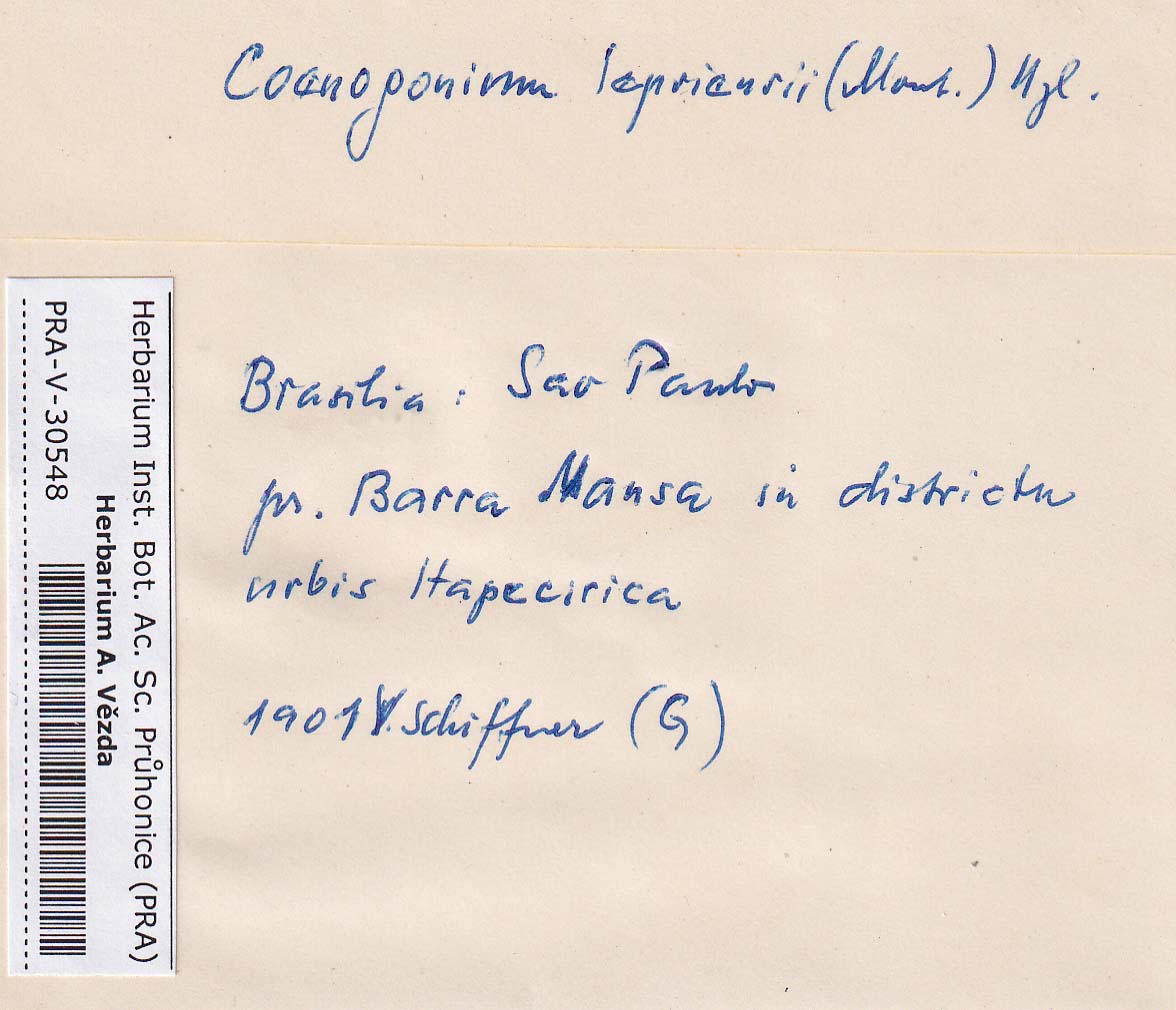 Coenogonium leprieurii (Mont.) Nyl.
Brasilia: Sao Paulo
pr. Barra Mansa in districtu
urbis Itapecirica
1901 V. Schiffner (G)
Herbarium Inst. Bot. Ac. Sc. Průhonice (PRA)
Herbarium A. Vězda
PRA-V-30548